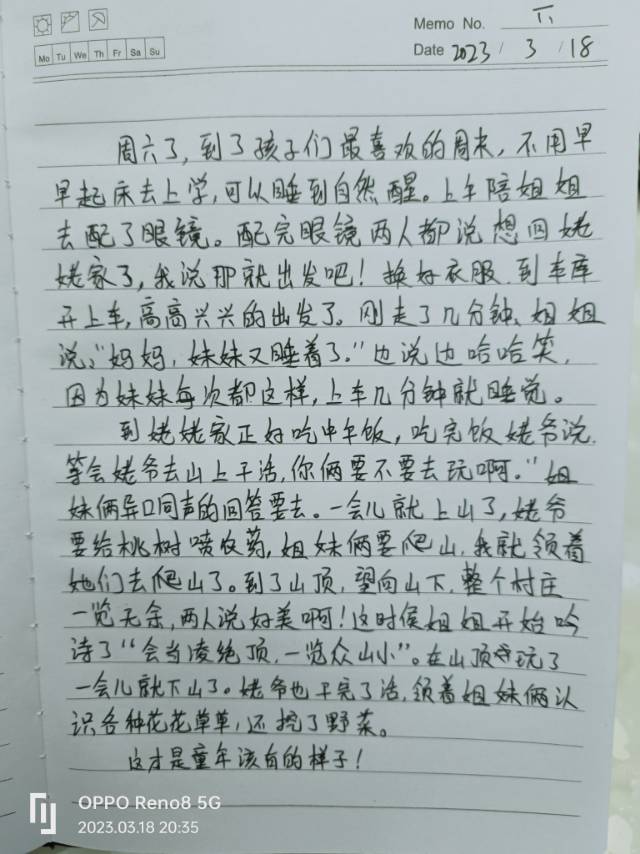 Memo No. 六
Mo Tu We Th Fr Sa Su
Date 2023 / 3 / 18
周六了，到了孩子们最喜欢的周末，不用早
早起床去上学，可以睡到自然醒。上午陪姐姐
去配了眼镜。配完眼镜两人都说想回姥
姥家了，我说那就出发吧！换好衣服，到车库
开上车，高高兴兴的出发了。刚走了几分钟，姐姐
说，“妈妈，妹妹又睡着了。”边说边哈哈笑，
因为妹妹每次都这样，上车几分钟就睡觉。
到姥姥家正好吃中午饭，吃完饭姥爷说，
等会姥爷去山上干活，你俩要不要去玩啊。”姐
妹俩异口同声的回答要去。一会儿就上山了，姥爷
要给桃树喷农药，姐妹俩要爬山，我就领着
她们去爬山了。到了山顶，望向山下，整个村庄
一览无余，两人说好美啊！这时侯姐姐开始吟
诗了“会当凌绝顶，一览众山小”。在山顶玩了
一会儿就下山了。姥爷也干完了活，领着姐妹俩认
识各种花花草草，还挖了野菜。
这才是童年该有的样子！
OPPO Reno8 5G
2023.03.18 20:35